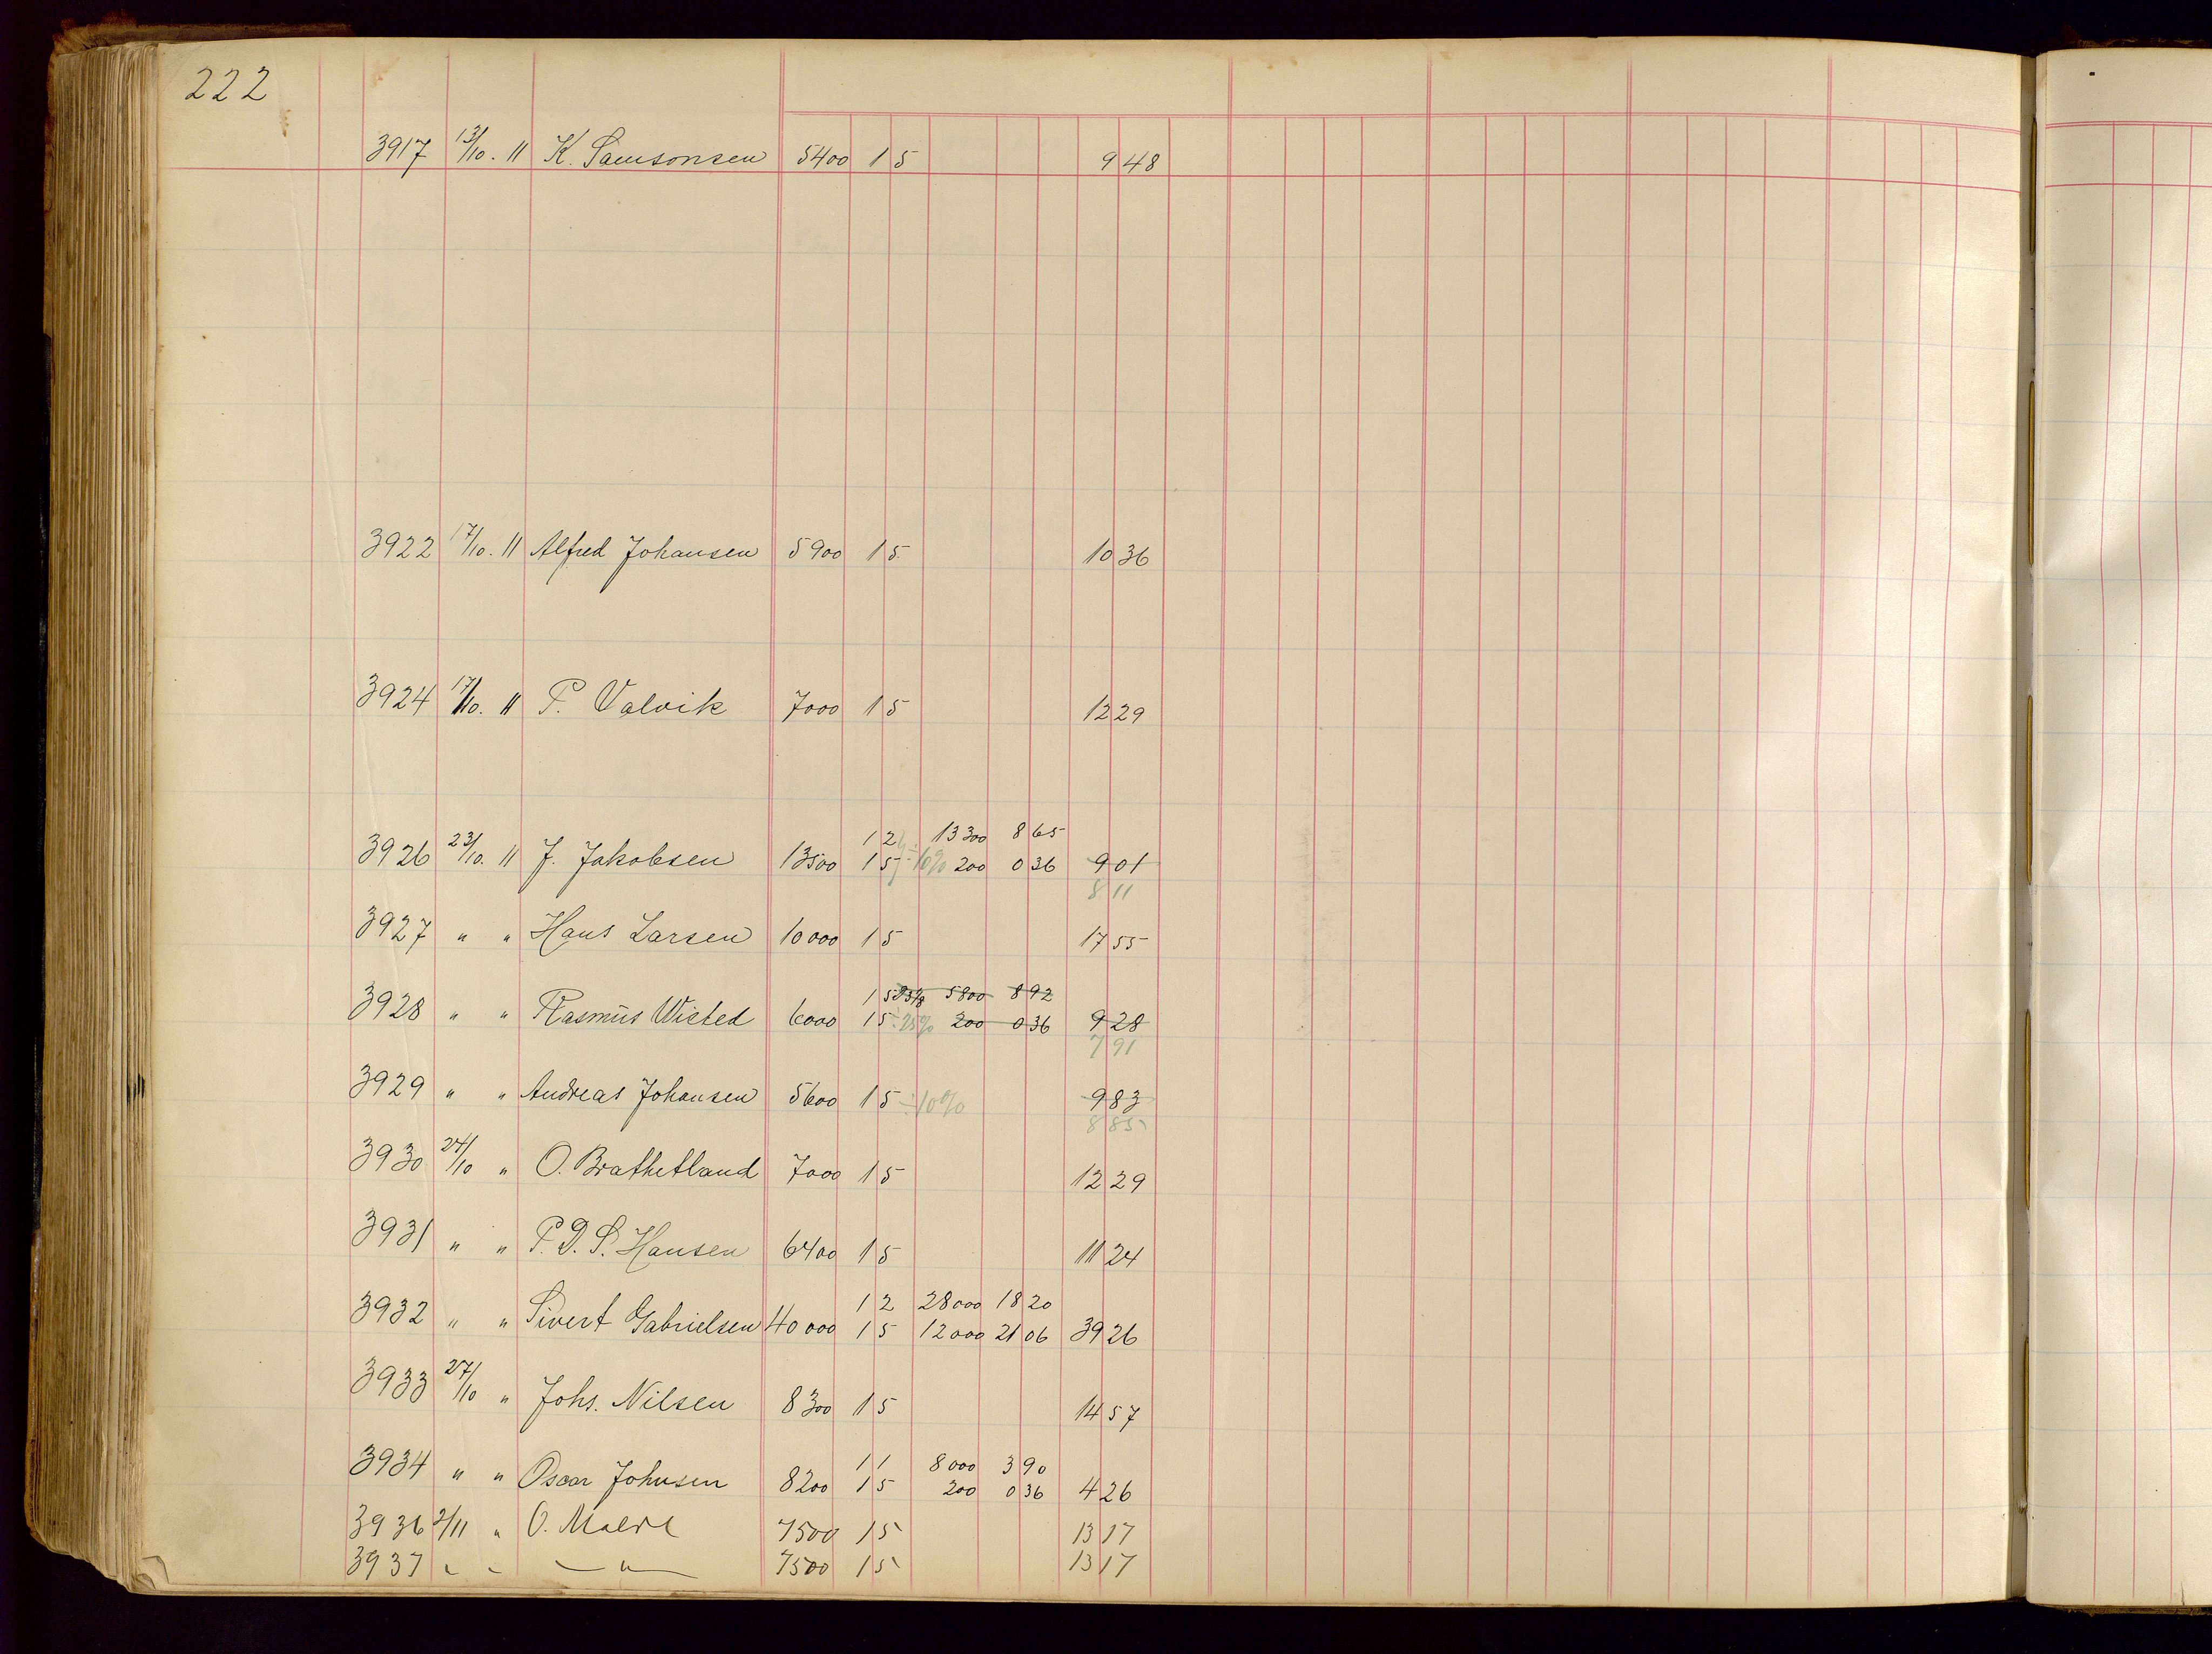 222
3917 13/10. 11 K. Samsonsen 5400 1 5 9 48
3922 17/10. 11 Alfred Johansen 5900 1 5 10 36
3924 17/10. 11 P. Valvik 7000 1 5 12 29
1 2 13300 8 65
3926 23/10. 11 J. Jakobsen 13500 1 5 ÷10% 200 0 36 9 01
8 11
3927 " " Hans Larsen 10000 1 5 17 55
1 5 5800 8 92
3928 " " Rasmus Wisted 6000 1 5 ÷25% 200 0 36 9 28
7 91
3929 " " Andreas Johansen 5600 1 5 ÷10% 9 83
8 85
3930 24/10 " O. Brathetland 7000 1 5 12 29
3931 " " P. D. S. Hansen 6400 1 5 11 24
1 2 28000 18 20
3932 " " Sivert Gabrielsen 40000 1 5 12000 21 06 39 26
3933 27/10 " Johs. Nilsen 8300 1 5 14 57
1 1 8000 3 90
3934 " " Oscar Johnsen 8200 1 5 200 0 36 4 26
3936 2/11 " O. 7500 1 5 13 17
3937 " " — " — 7500 1 5 13 17